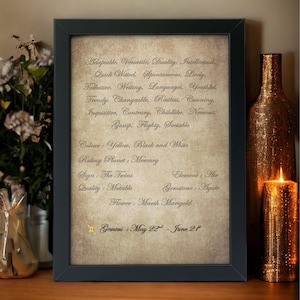 Adaptable, Versatile, Duality, Intellectual,
Quick Witted, Spontaneous, Lively,
Talkative, Writing, Languages, Youthful,
Trendy, Changeable, Restless, Cunning,
Inquisitive, Contrary, Childlike, Nervous,
Gossip, Flighty, Sociable
Colour : Yellow, Black and White
Ruling Planet : Mercury
Sign : The Twins Element : Air
Quality : Mutable Gemstone : Agate
Flower : Marsh Marigold
♊ Gemini : May 22nd - June 21st